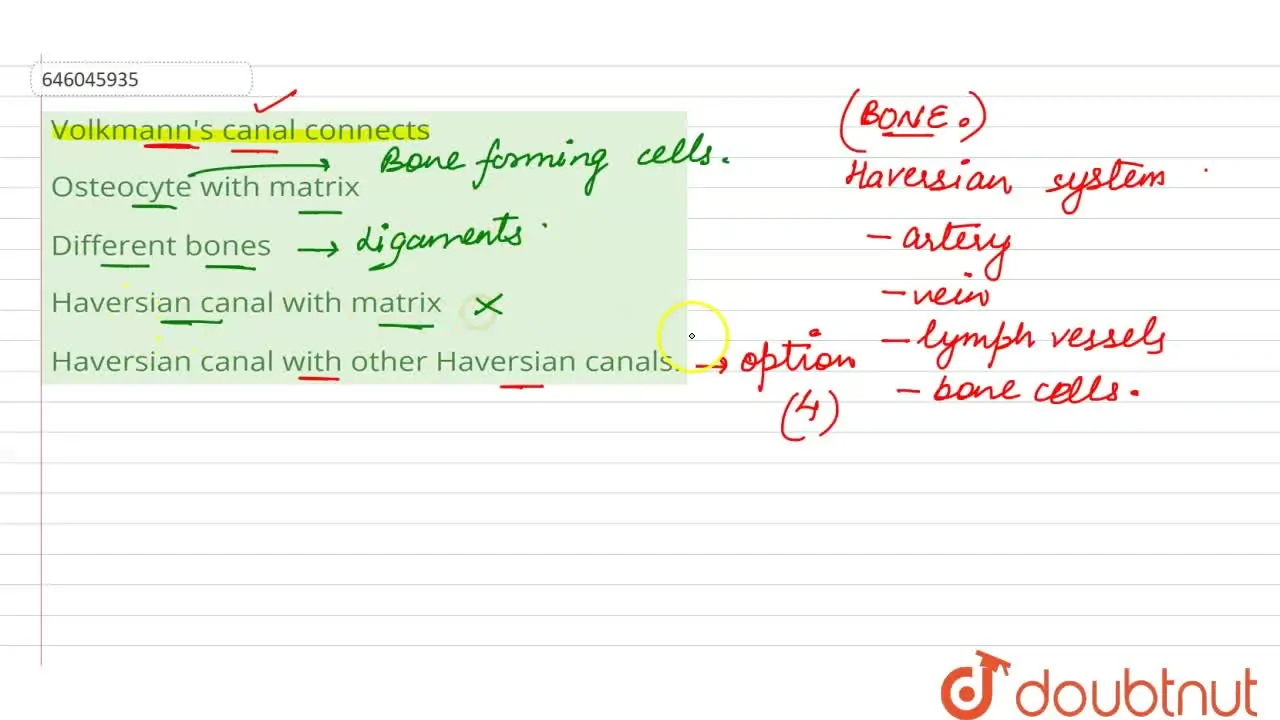 646045935
Volkmann's canal connects
Osteocyte with matrix
Bone forming cells.
Different bones → Ligaments
Haversian canal with matrix ×
Haversian canal with other Haversian canals. → option
(4)
(BONE.)
Haversian system
- artery
- vein
- lymph vessels
- bone cells.
doubtnut